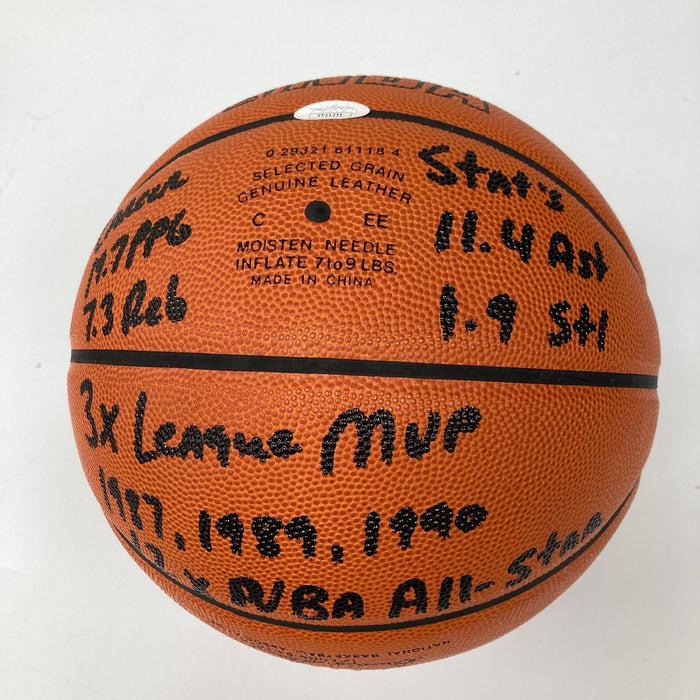 0 29321 61118 4
SELECTED GRAIN
GENUINE LEATHER
C EE
MOISTEN NEEDLE
INFLATE 7 to 9 LBS.
MADE IN CHINA
Stat's
19.7 PPG 11.4 Ast
7.3 Reb 1.9 Stl
3x League MVP
1987, 1989, 1990
12 x NBA All-Star
NATIONAL BASKETBALL